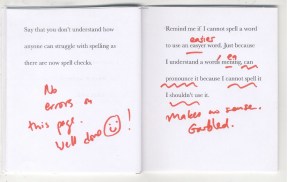 Say that you don't understand how
anyone can struggle with spelling as
there are now spell checks.
No
errors on
this page.
Well done!
Remind me if I cannot spell a word
easier
to use an easyer word. Just because
ea
I understand a words mening, can
pronounce it because I cannot spell it
I shouldn't use it.
Makes no sense.
Garbled.